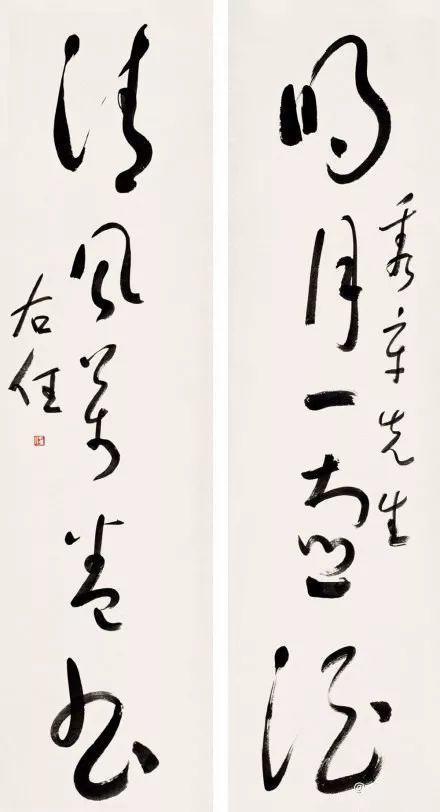 秀章先生
明月一壺酒
清風萬卷書
右任